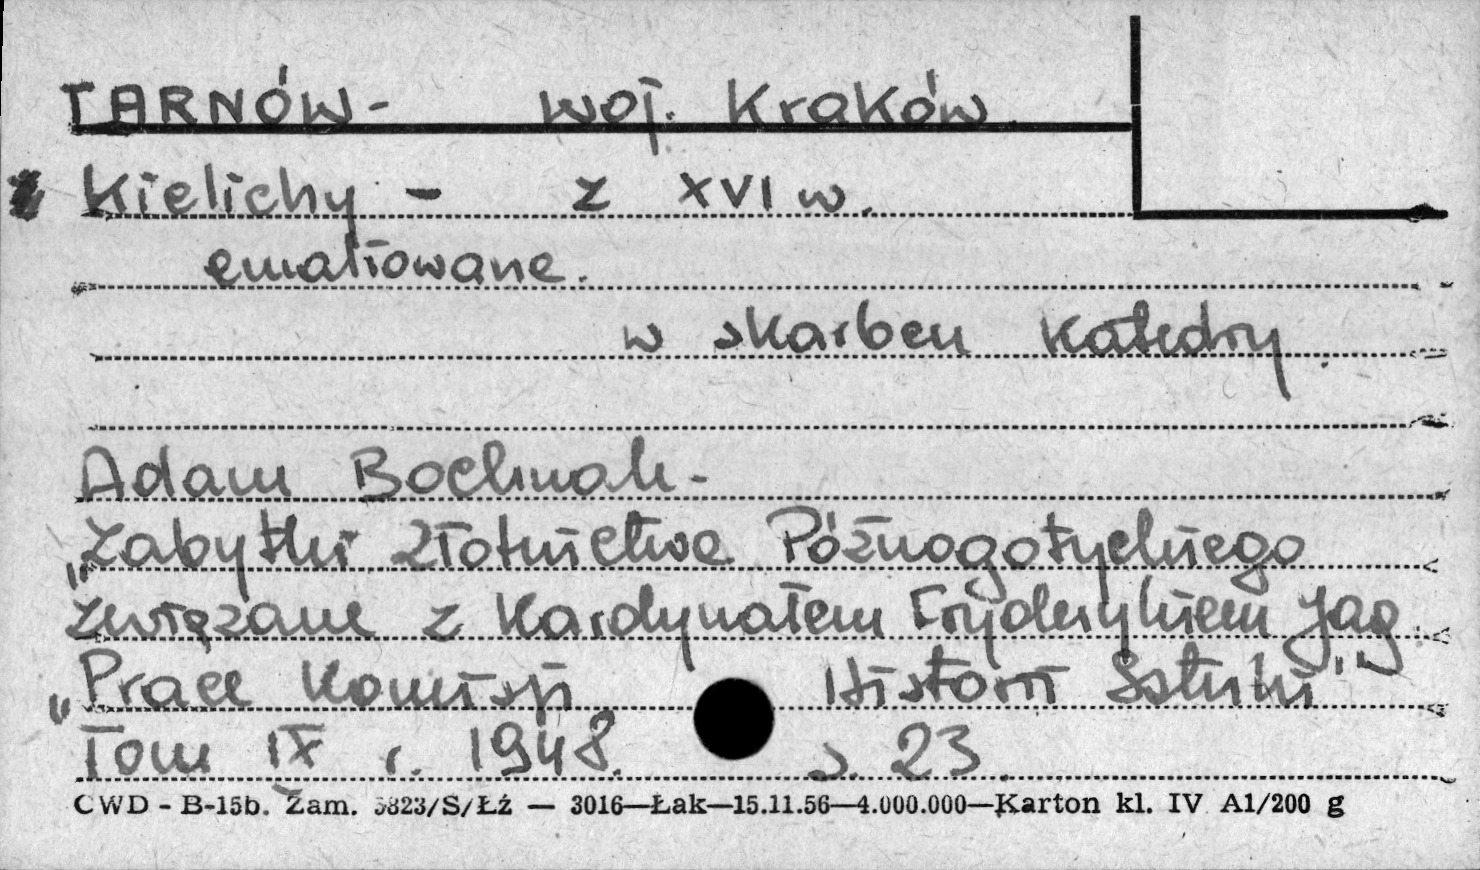 TARNÓW- woj. Kraków
Kielichy - z XVI w.
emaliowane.
w skarbcu Katedry.
Adam Bochnak-
„Zabytki złotnictwa Późnogotyckiego
związane z Kardynałem Fryderykiem Jag.
„Prace Komisji Historii Sztuki"
Tom IX r. 1948. s. 23.
CWD - B-15b. Zam. 5823/S/Łź — 3016—Łak—15.11.56—4.000.000—Karton kl. IV A1/200 g